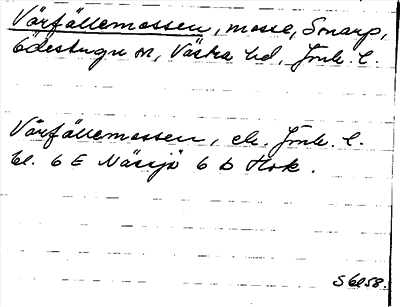 Vårfällemossen, mosse, Sonarp,
Ödestugu sn, Västra hd, Jönk. l.
Vårfällemossen, ek. Jönk. l.
bl. 6 E Nässjö 6 b Hok.
S6E58.